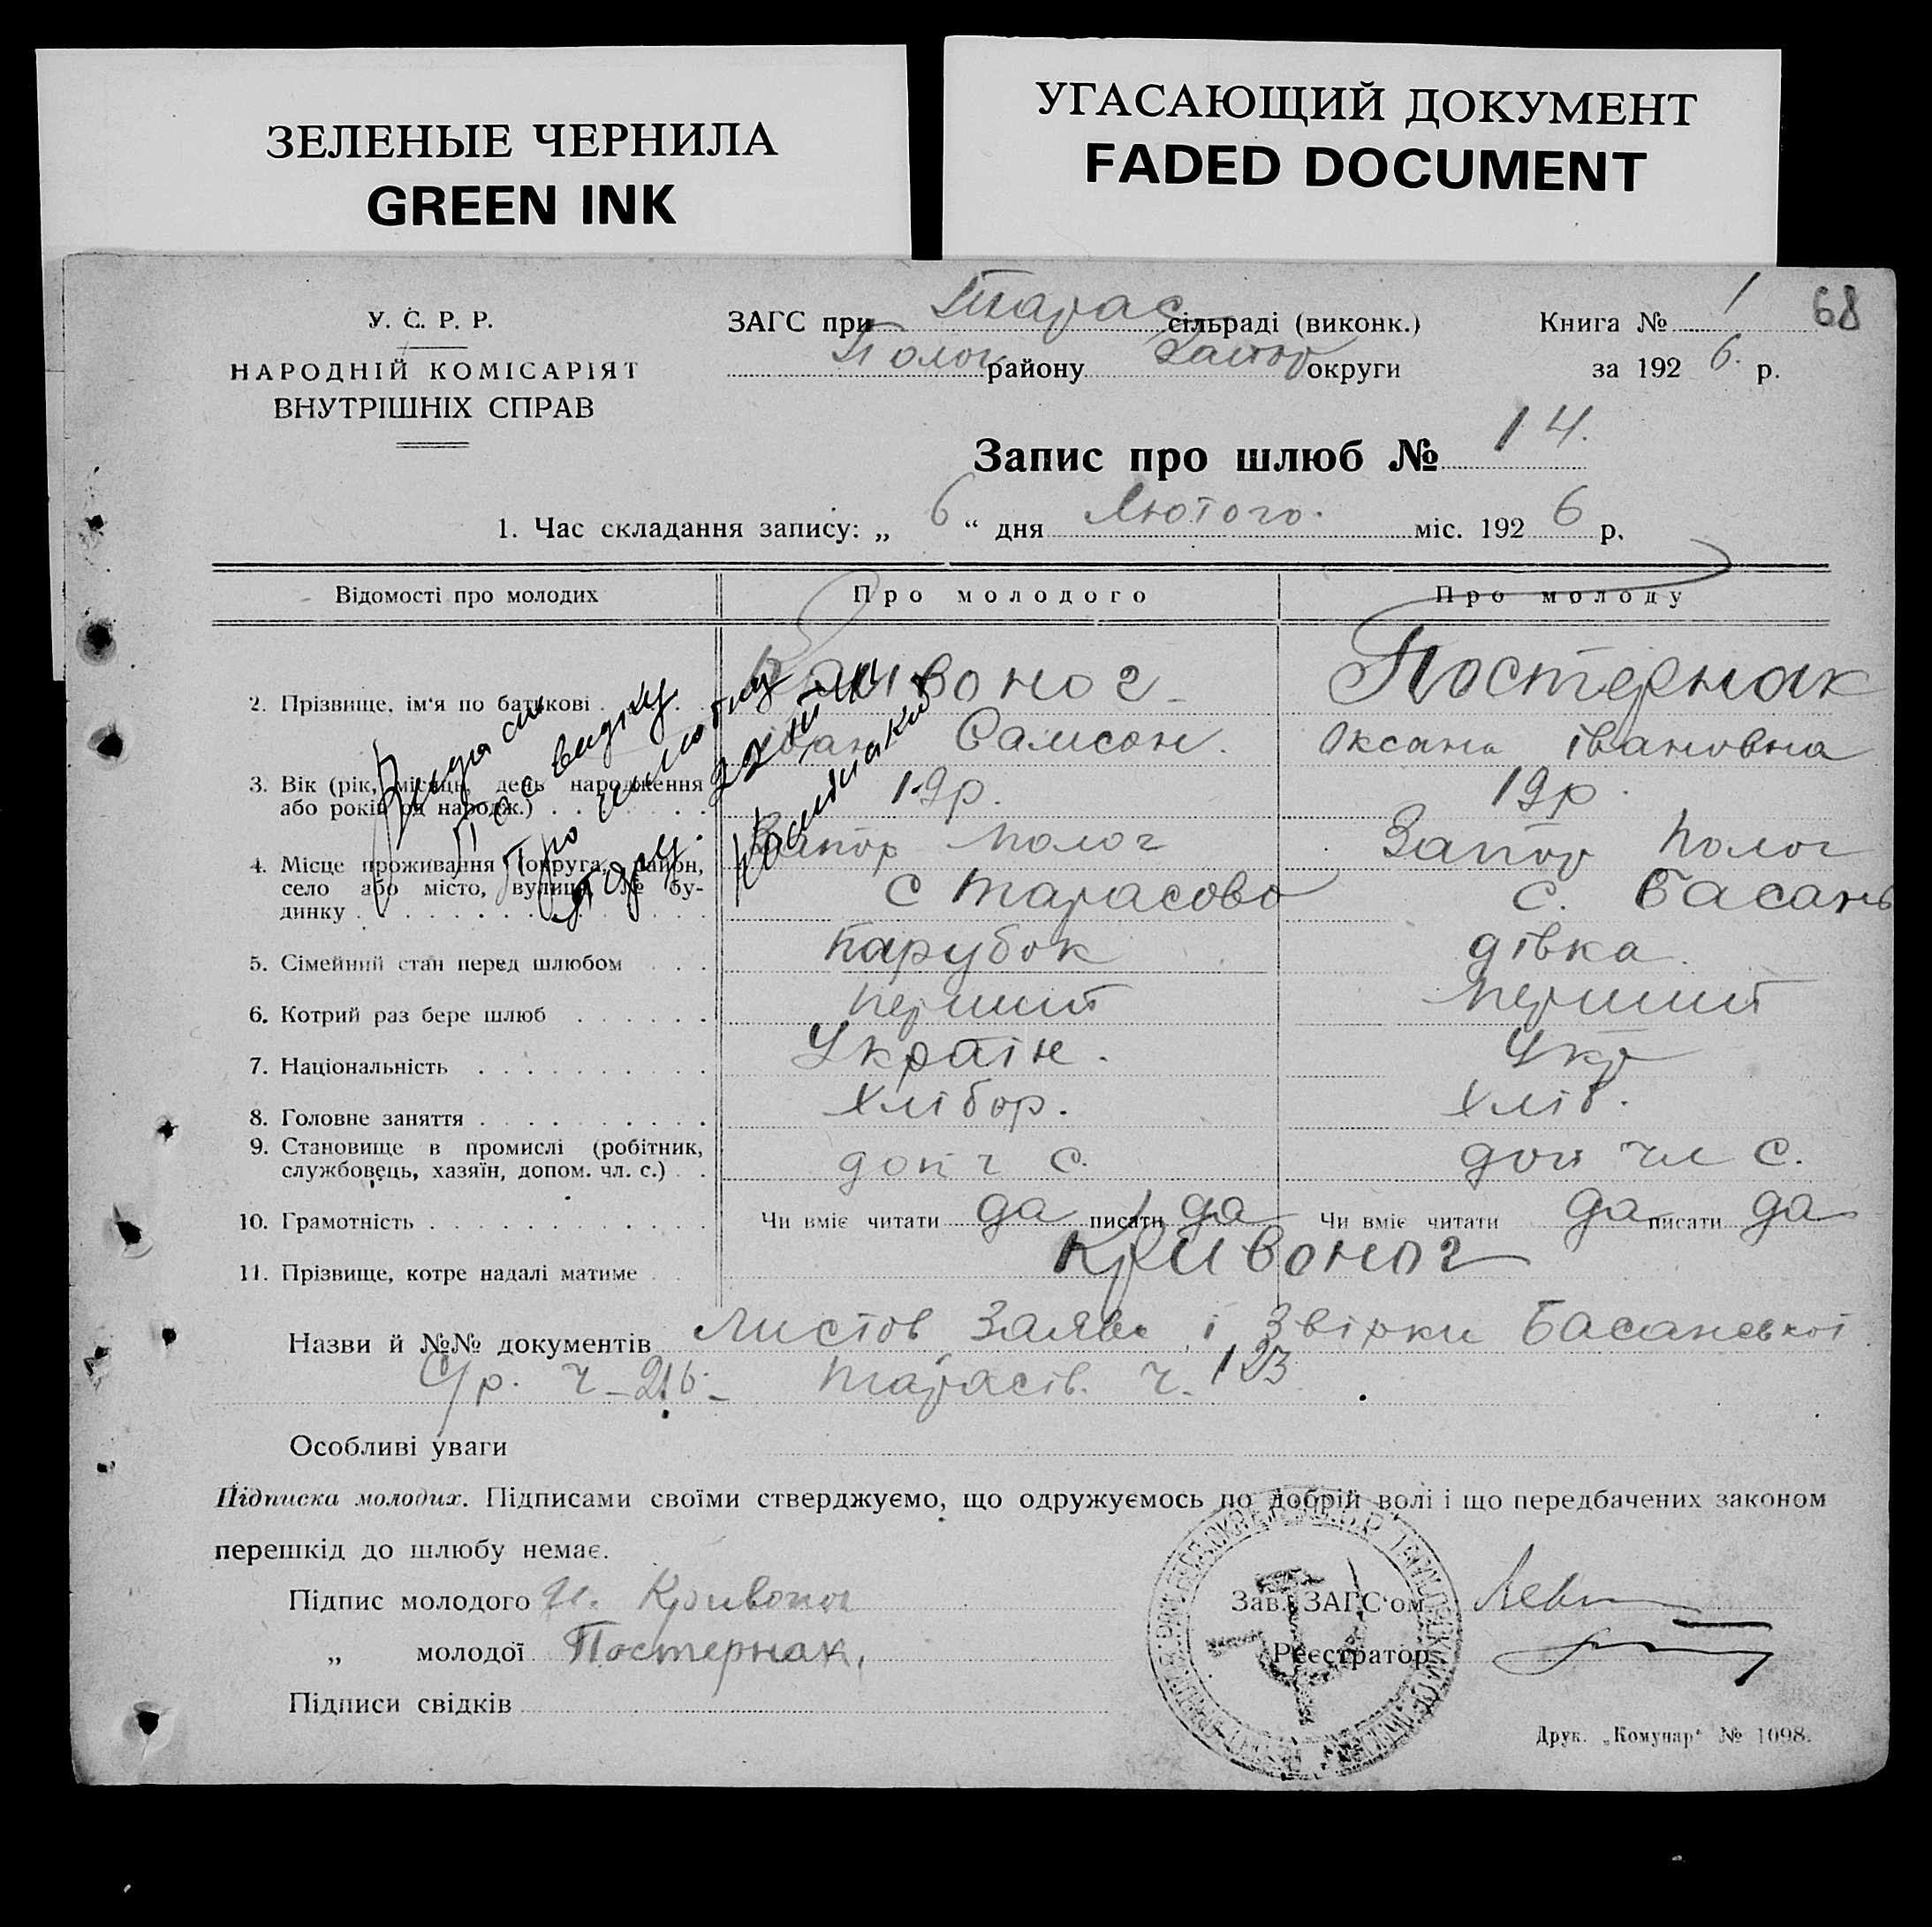 ЗЕЛЕНЫЕ ЧЕРНИЛА
GREEN INK
УГАСАЮЩИЙ ДОКУМЕНТ
FADED DOCUMENT
У. С. Р. Р.
НАРОДНІЙ КОМІСАРІЯТ
ВНУТРІШНІХ СПРАВ
ЗАГС при Тарас сільраді (виконк.)
Полог району Запор округи
Книга № 1 68
за 192 6. р.
Запис про шлюб № 14.
1. Час складання запису: „ 6 “ дня Лютого. міс. 192 6 р.
Відомості про молодих Про молодого Про молоду
2. Прізвище, ім'я по батькові Кривоног Постернак
Іван Самсон. Оксана Івановна
3. Вік (рік, місяць, день народження
або років од народж.) 19р. 19р.
4. Місце проживання (округа, район, Запор Полог Запор Полог
село або місто, вулиця, № бу- с Тарасово с. Басань
динку
5. Сімейний стан перед шлюбом парубок дівка.
6. Котрий раз бере шлюб перший перший
7. Національність Україн. Укр
8. Головне заняття Хлібор. Хліб.
9. Становище в промислі (робітник,
службовець, хазяїн, допом. чл. с.) доп ч с. доп чл с.
10. Грамотність Чи вміє читати да писати да Чи вміє читати да писати да
11. Прізвище, котре надалі матиме Кривоног
Назви й №№ документів Листов Заяви і Звірки Басанської
С/р. ч - 216 - Тарасів. ч. 123
Особливі уваги
Підписка молодих. Підписами своїми стверджуємо, що одружуємось по добрій волі і що передбачених законом
перешкід до шлюбу немає.
Підпис молодого И. Кривоног
„ молодої Постернак.
Підписи свідків
Зав. ЗАГС'ом
Реєстратор
Друк. „Комунар“ № 1098.